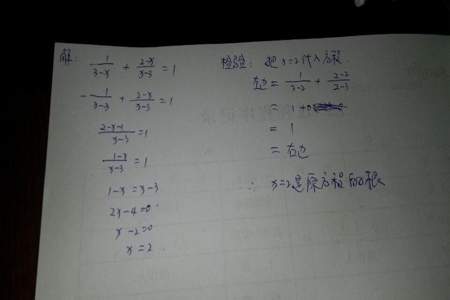 解: 1/(3-x) + (2-x)/(x-3) = 1
-1/(x-3) + (2-x)/(x-3) = 1
(2-x-1)/(x-3) = 1
(1-x)/(x-3) = 1
1-x = x-3
2x-4=0
x-2=0
x=2
检验: 把x=2代入方程
左边 = 1/(3-2) + (2-2)/(2-3)
= 1+0
= 1
= 右边
∴ x=2是原方程的根